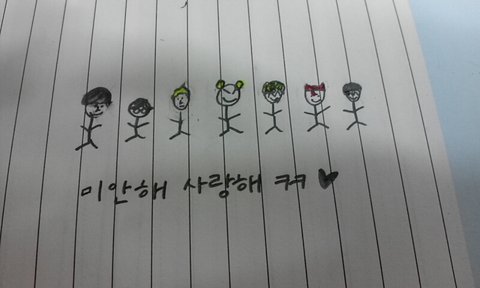 미안해 사랑해 ㅋㅋ ♥